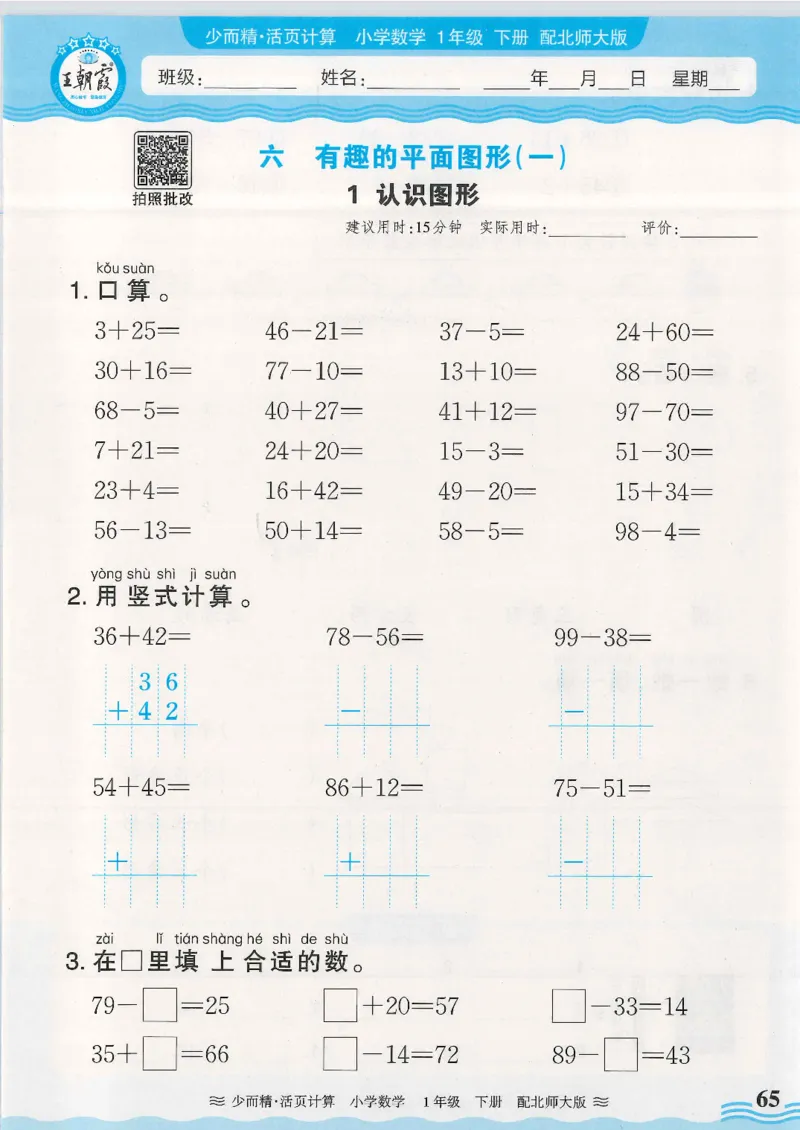 少而精·活页计算 小学数学 1年级 下册 配北师大版
王朝霞
班级:________ 姓名:________ ____年__月__日 星期__
拍照批改
六 有趣的平面图形(一)
1 认识图形
建议用时:15分钟 实际用时:________ 评价:________
kǒu suàn
1. 口算。
3+25= 46-21= 37-5= 24+60=
30+16= 77-10= 13+10= 88-50=
68-5= 40+27= 41+12= 97-70=
7+21= 24+20= 15-3= 51-30=
23+4= 16+42= 49-20= 15+34=
56-13= 50+14= 58-5= 98-4=
yòng shù shì jì suàn
2. 用竖式计算。
36+42= 78-56= 99-38=
3 6
+ 4 2 - -
54+45= 86+12= 75-51=
+ + -
zài lǐ tián shàng hé shì de shù
3. 在□里填上合适的数。
79-□=25 □+20=57 □-33=14
35+□=66 □-14=72 89-□=43
少而精·活页计算 小学数学 1年级 下册 配北师大版
65